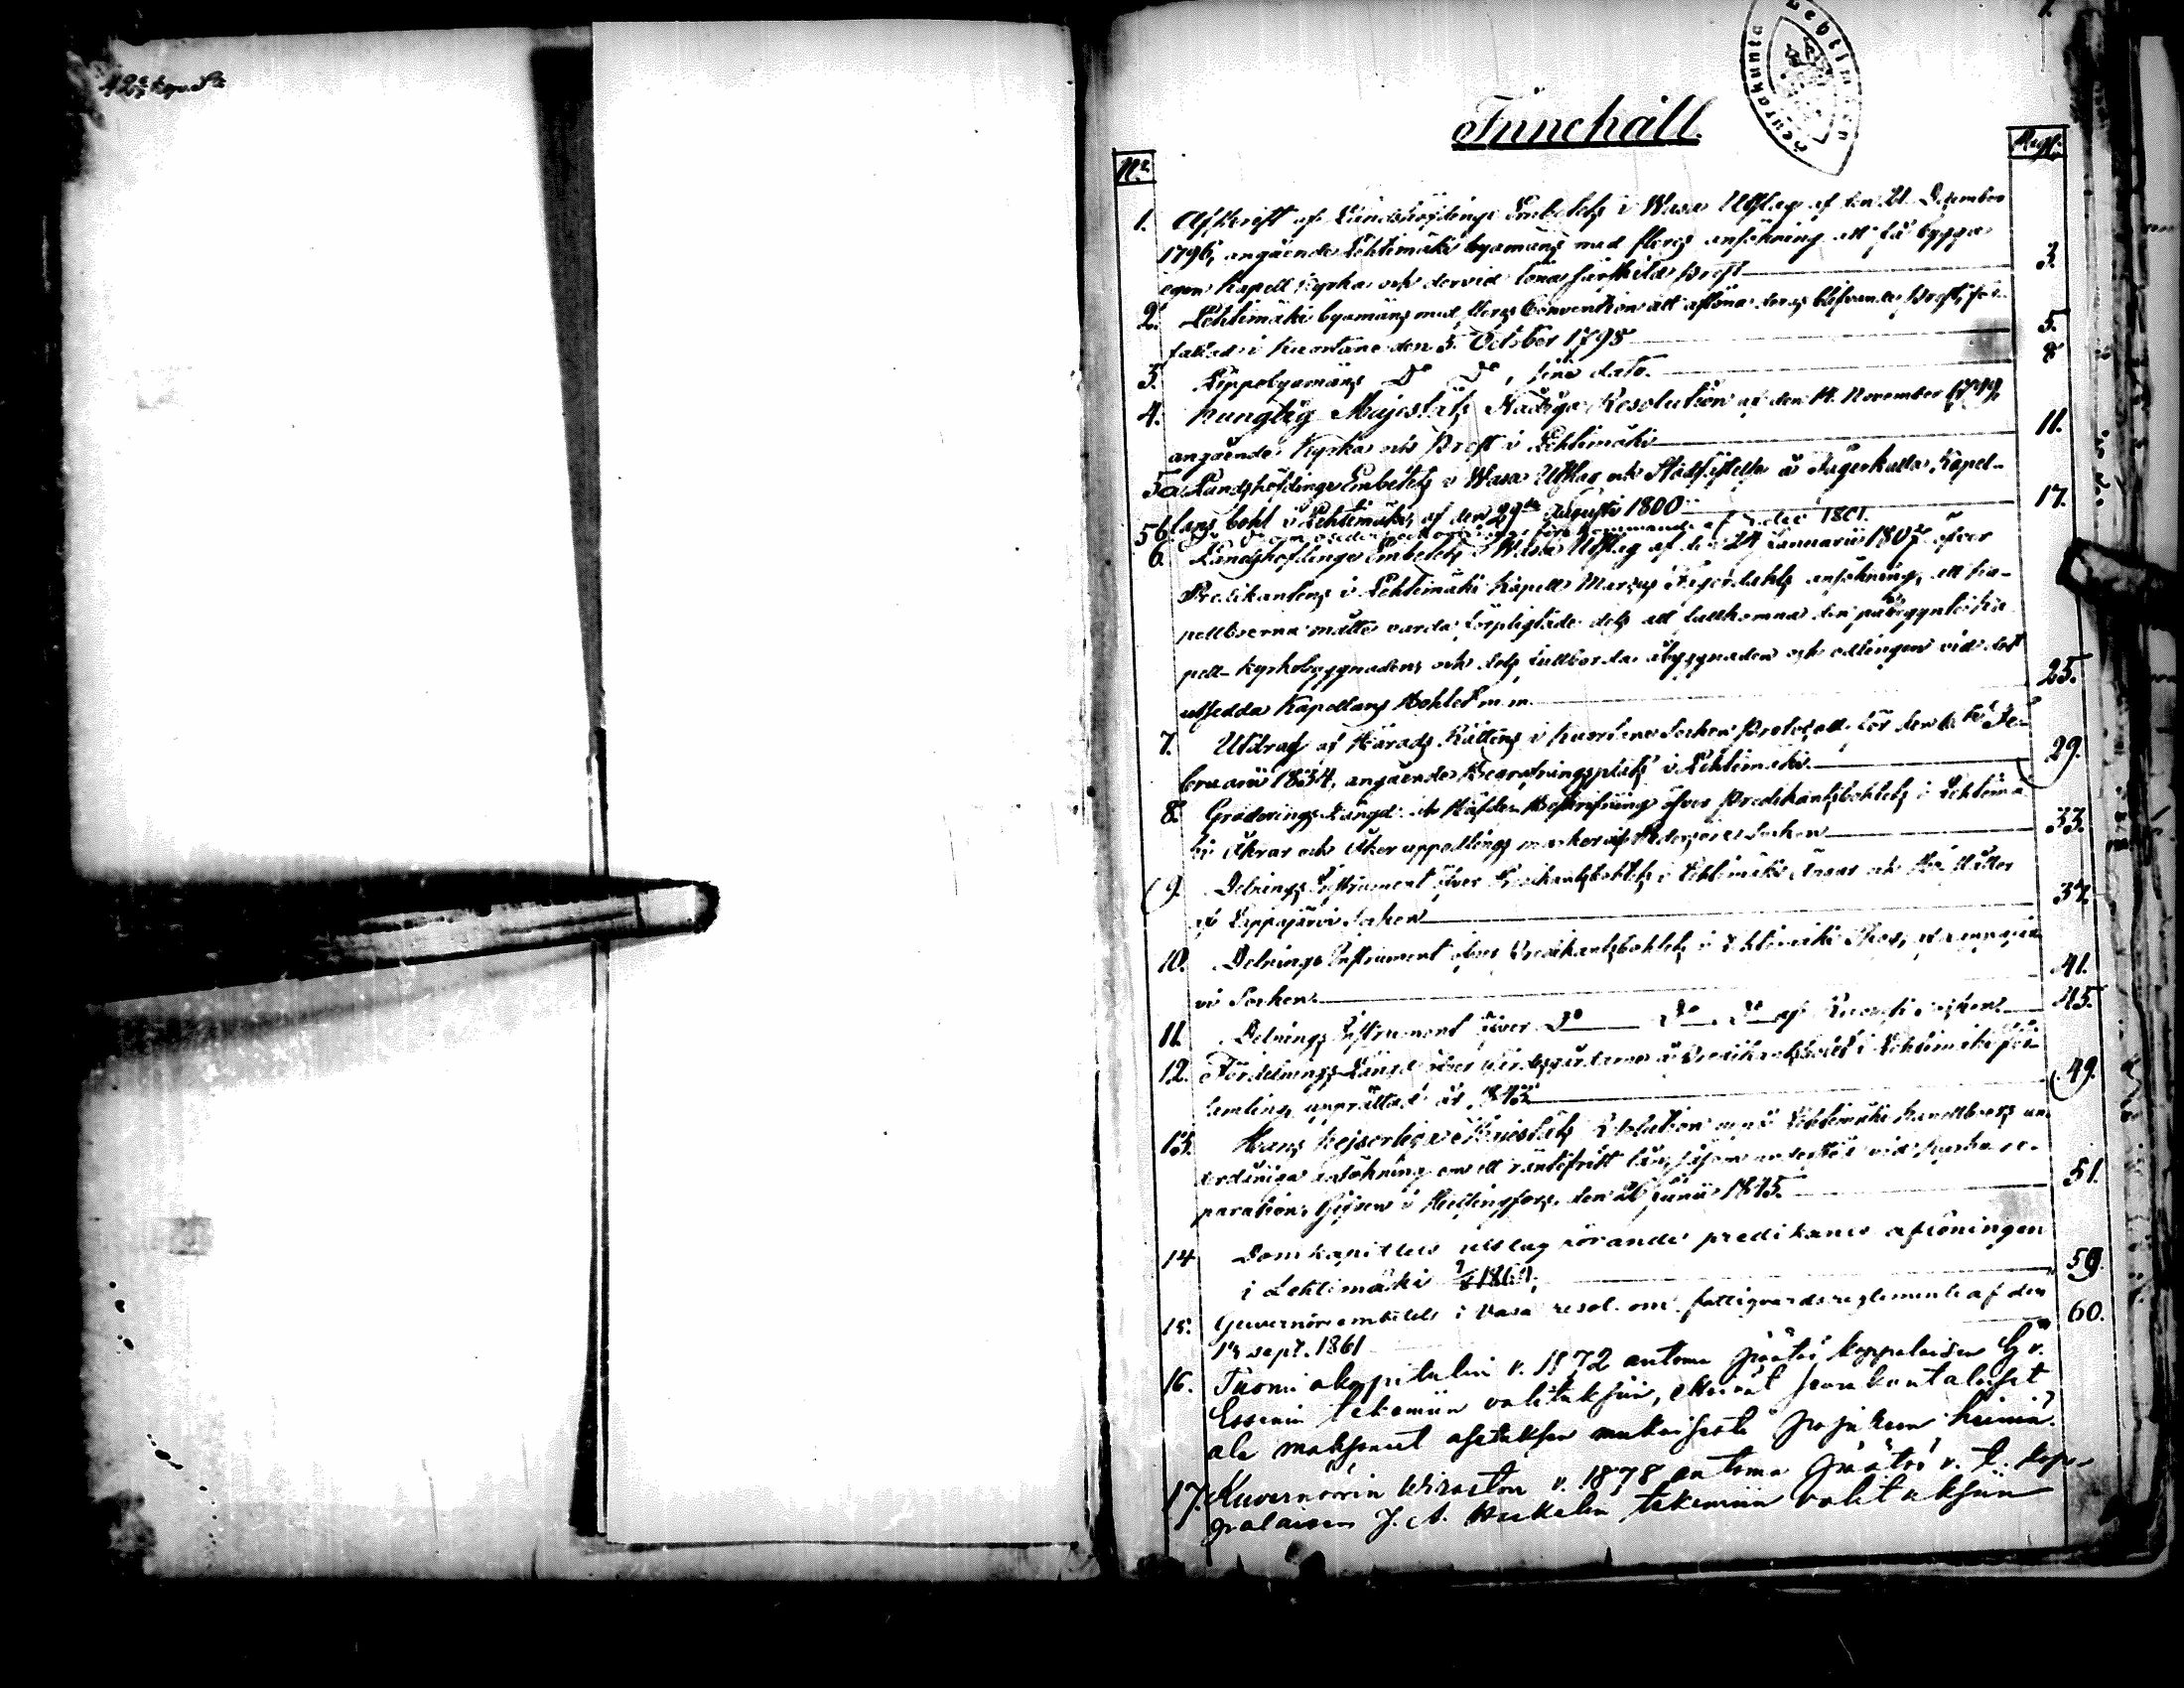 Innehåll.
No
Pag:
1. Afskrift af Landshöfdinge Embetets i Wasa Utslag af den 21 December
1796, angående Lehtimäki byamäns med fleres ansökning att få bygga
egen Kapell Kyrka och dervid löna särskild Prest 3.
2. Lehtimäki byamäns med fleres Convention att aflöna deras blifvande Prest, för-
fattad i Kuortane den 5. October 1798 5.
3. Lippobyamäns Do Do, sine dato. 8
4. Kunglig Majestäts Nådiga Resolution af den 14. November 1799,
angående Kyrka och Prest i Lehtimäki 11.
5a Landshöfdinge Embetets i Wasa Utslag och Stadfästelse å Kapel-
lans bohl i Lehtimäki, af den 29de Augusti 1800 17.
5b. 1801.
6. Landshöfdinge Embetets i Wasa Utslag af den 24 Januarii 1807 öfver
Predikantens i Lehtimäki Kapell Marcus Fagerdahls ansökning, att ka-
pellboerna måtte varda förpligtade dels att fullkomna den påbegynte ka-
pell-kyrkobyggnaden och dels fullborda åbyggnaden och odlingen vid det
utsedda Kapellans Bohlet m.m. 25.
7. Utdrag af Härads Rättens i Kuortane Socken Protocoll för den Fe-
bruarii 1834, angående Begrafningsplats i Lehtimäki. 29.
8. Graderings Längd och Häfde-Beskrifning öfver Predikantsbohlets i Lehtimä-
ki Åkrar och Åkeruppodlings marker Socken 33.
9. Delnings Instrument öfver Predikantsbohlets i Lehtimäki Ängar
af Lappajärvi Socken 37.
10. Delnings Instrument öfver Predikantsbohlets i Lehtimäki
vi Socken. 41.
11. Delnings Instrument öfver Do Do Do af Socken 45.
12. Fördelnings Längd öfver Gärdesgårdarne å Predikantsbolet i Lehtimäki för-
samling, upprättad år 49.
13. Hans Kejserliga Majestäts Resolution uppå Lehtimäki Kapellboers un-
derdåniga ansökning om ett räntefritt lån, såsom understöd vid kyrka re-
paration. Gifven i Helsingfors, den 26 Junii 1845. 51.
14 Domkapitlets utslag rörande predikants aflöningen
i Lehtimäki 59.
15. Guvernörsembetets i Vasa resol. om fattigvårdsreglemente af den
13 sept. 1861 60.
16. Tuomiokapitulin v. 1872 antama päätös kappalaisen
Essenin tekemään valitukseen, etteivät seurakuntalaiset
ole maksaneet asetuksen mukaisesti
17. Kuvernöörin Wiraston v. 1878 antama päätös v. t. kap-
palaisen J. A. tekemään valitukseen